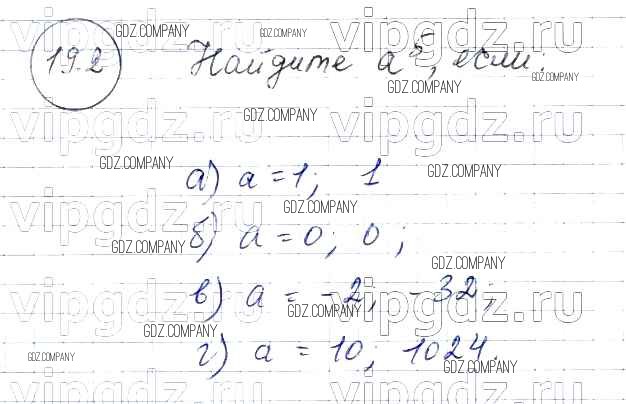 19.2 Найдите a⁵, если:
а) a = 1; 1
б) a = 0; 0;
в) a = -2; -32;
г) a = 10; 1024.
vipgdz.ru
GDZ.COMPANY